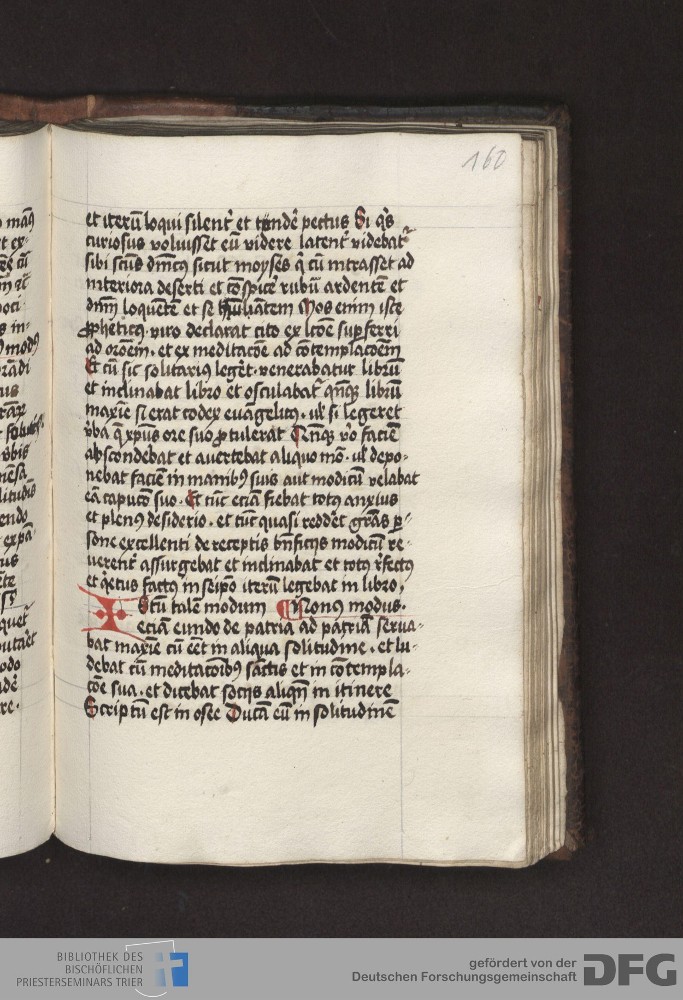 160
et iterū loqui silent᷑ et tondē pectus Si qͥs
curiosus voluisset eū videre latent᷑ videbat᷑
sibi scūs dn̄icꝰ sicut moyses qͥ cū intrasset ad
interiora deserti et cōspicēt rubū ardentē et
dn̄m loquētē et se Mos enim iste
ꝓpheticꝰ viro declarat cito ex lc̄oe suꝑferri
ad or̄oem. et ex meditac̄oe ad cōtemplac̄oem
Et cū sic solitariꝰ leger᷑t. venerabatur librū
et inclinabat libro et osculabat᷑ qn̄qꝫ librū
maxīe si erat codex euāgelicꝰ. ul̓ si legeret
v̓ba q̄ xpūs ore suo ꝓtulerat Qn̄qꝫ v̓o faciē
abscondebat et auertebat aliquo mō. ul̓ depo-
nebat faciē in manibꝰ suis aut modicū velabat
eā capucō suo. Et tūc eciā fiebat totꝰ anxius
et plenꝰ desiderio. et tūc quasi redder᷑t gr̄as ꝑ-
sone excellenti de receptis bn̄ficijs modicū re-
uerent᷑ assurgebat et inclinabat et totꝰ r̓fectꝰ
et qͥetus factꝰ in seip̄o iterū legebat in libro.
Istū talē modum Nonꝰ modus.
eciam eundo de patria ad patriā serua-
bat maxīe cū eēt in aliqua solitudine. et lu-
debat cū meditac̄oibꝰ sāctis et in cōtempla-
c̄oe sua. et dicebat socijs aliqn̄ in itinere
Scriptū est in osee Ducā eū in solitudinē
BIBLIOTHEK DES
BISCHÖFLICHEN
PRIESTERSEMINARS TRIER
gefördert von der
Deutschen Forschungsgemeinschaft
DFG